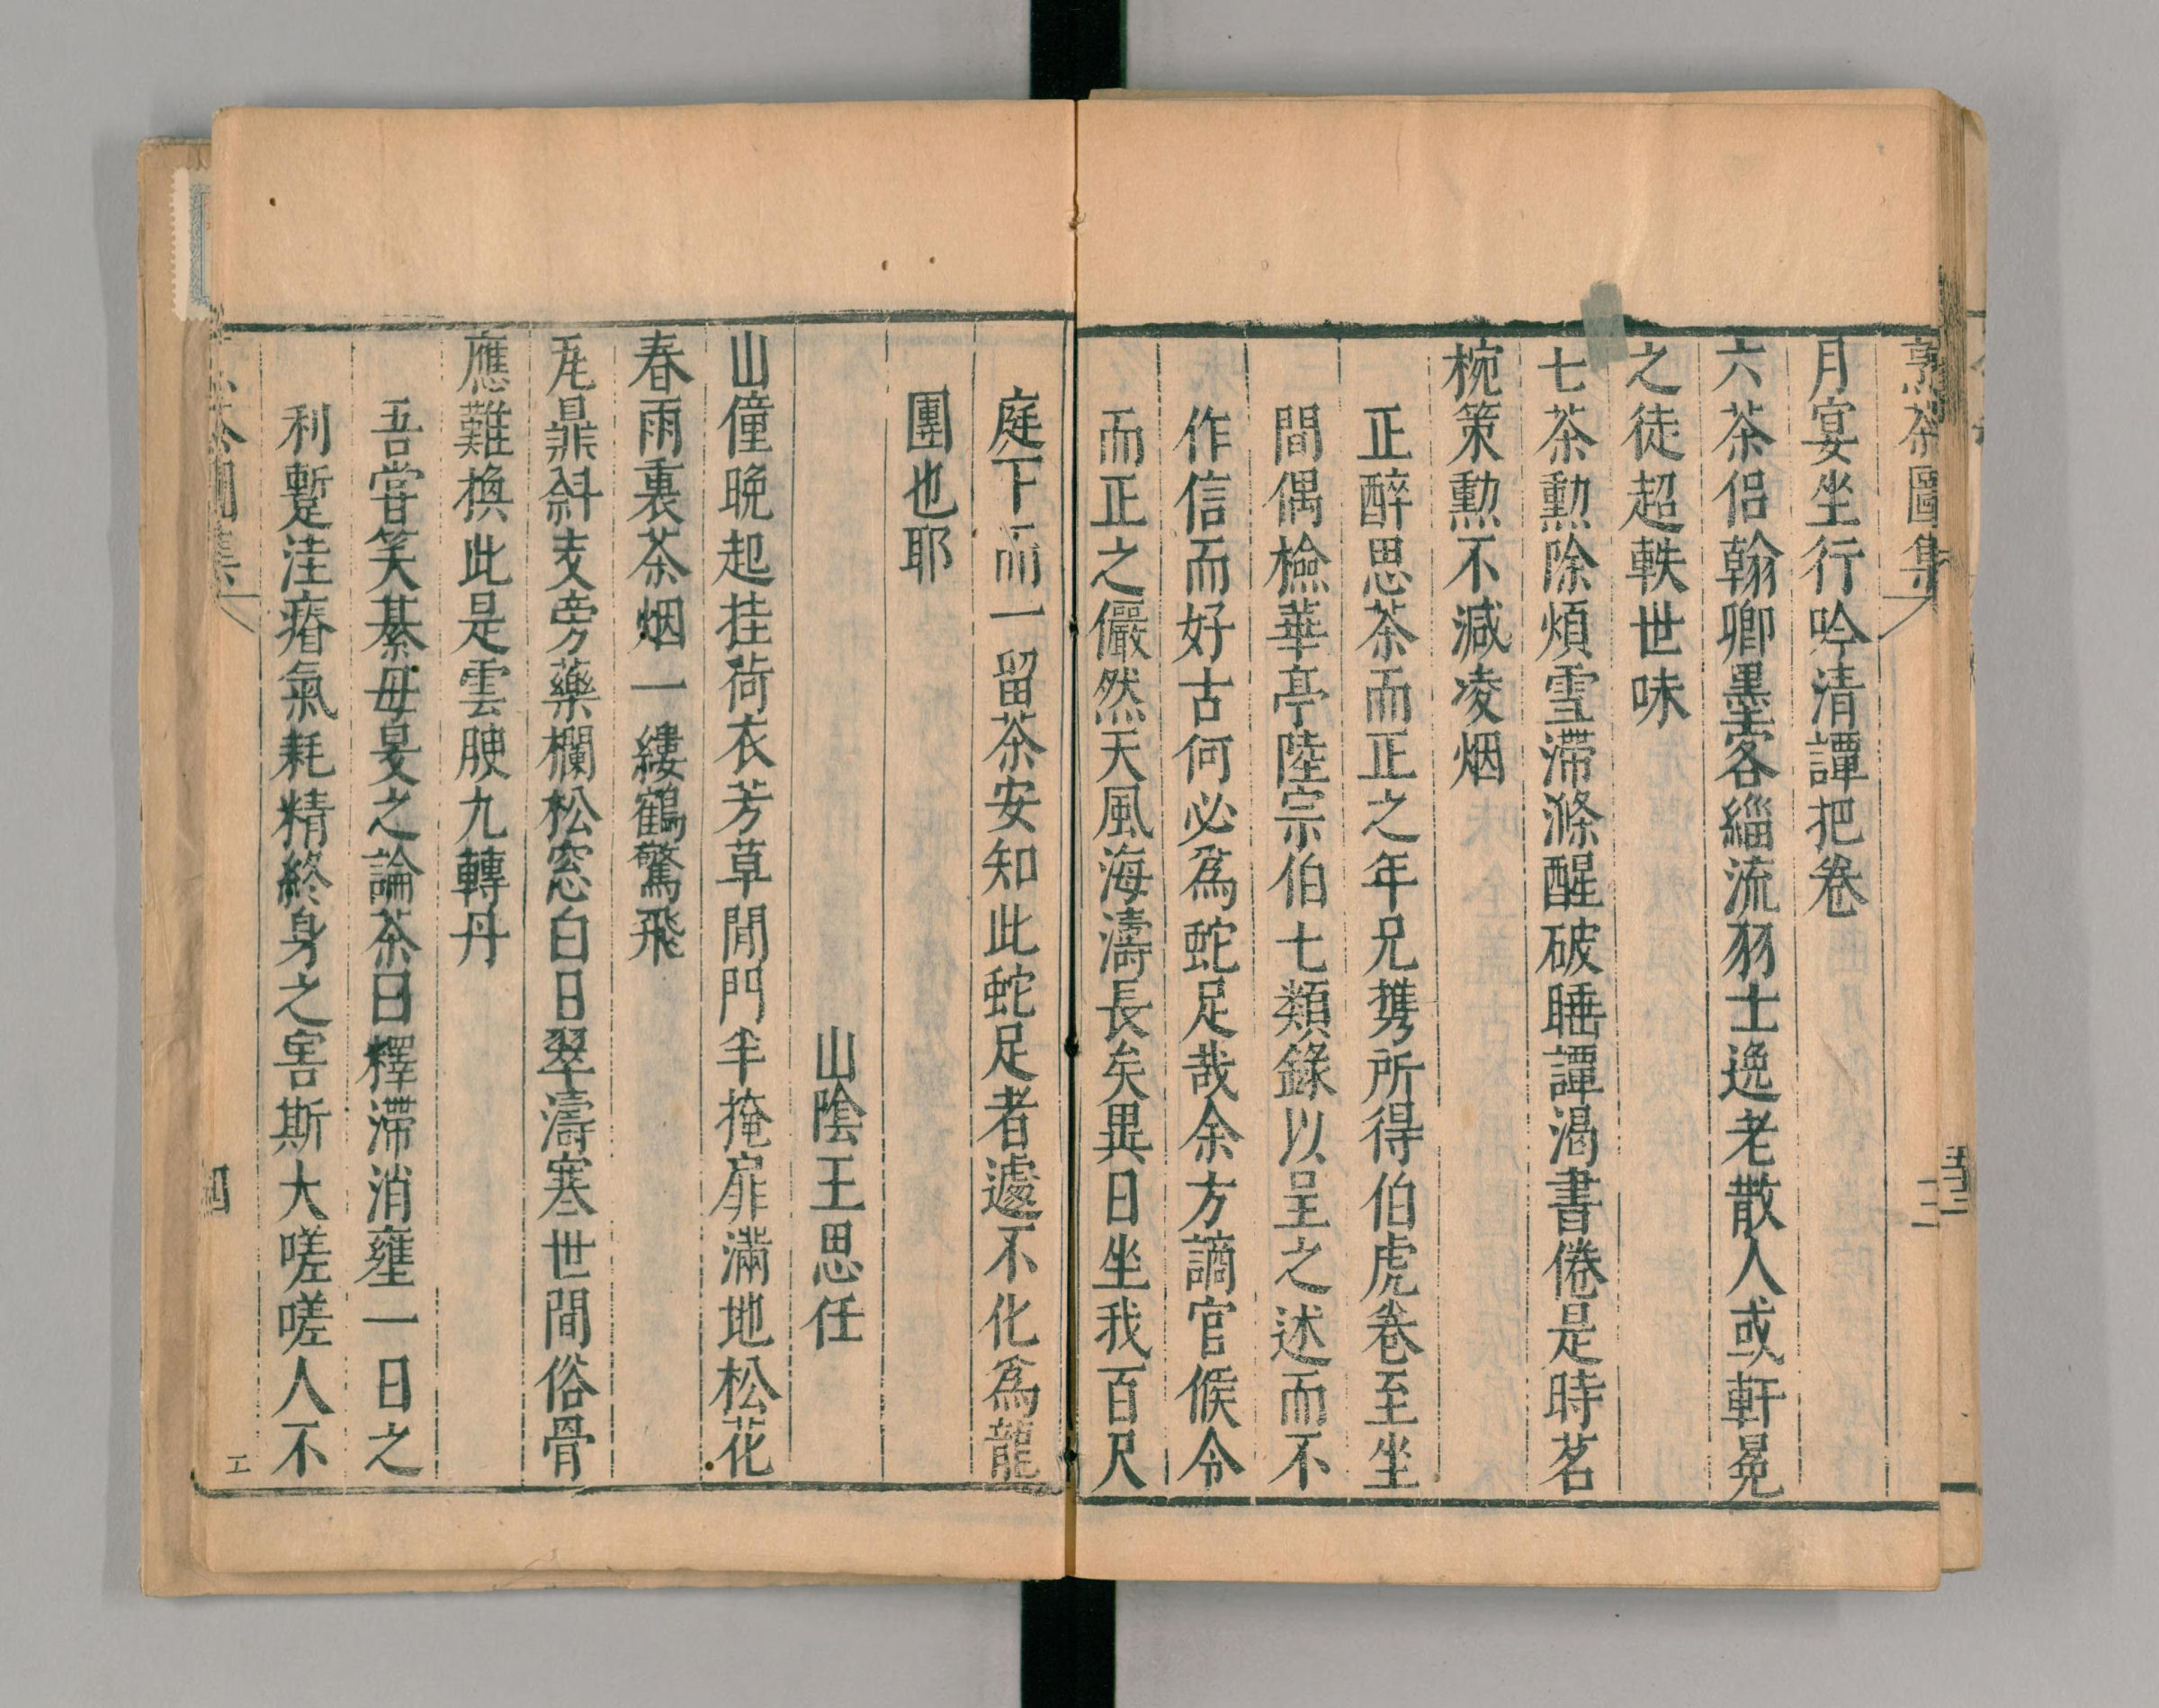 烹茶圖集
三
月宴坐行吟清譚把卷
六茶侶翰卿墨客緇流羽士逸老散人或軒冕
之徒超軼世味
七茶勲除煩雪滯滌醒破睡譚渴書倦是時茗
椀策勲不減凌烟
正醉思茶而正之年兄携所得伯虎卷至坐
間偶檢華亭陸宗伯七類錄以呈之述而不
作信而好古何必爲蛇足哉余方謫官候令
而正之儼然天風海濤長矣異日坐我百尺
庭下而一留茶安知此蛇足者遽不化爲龍
團也耶
山陰王思任
山僮晩起挂荷衣芳草閒門半掩扉滿地松花
春雨裏茶烟一縷鶴驚飛
瓦鼎斜支旁藥欄松窓白日翠濤寒世間俗骨
應難換此是雲腴九轉丹
吾嘗笑綦毋旻之論茶曰釋滯消壅一日之
利蹔洼瘠氣耗精終身之害斯大嗟嗟人不
四
工